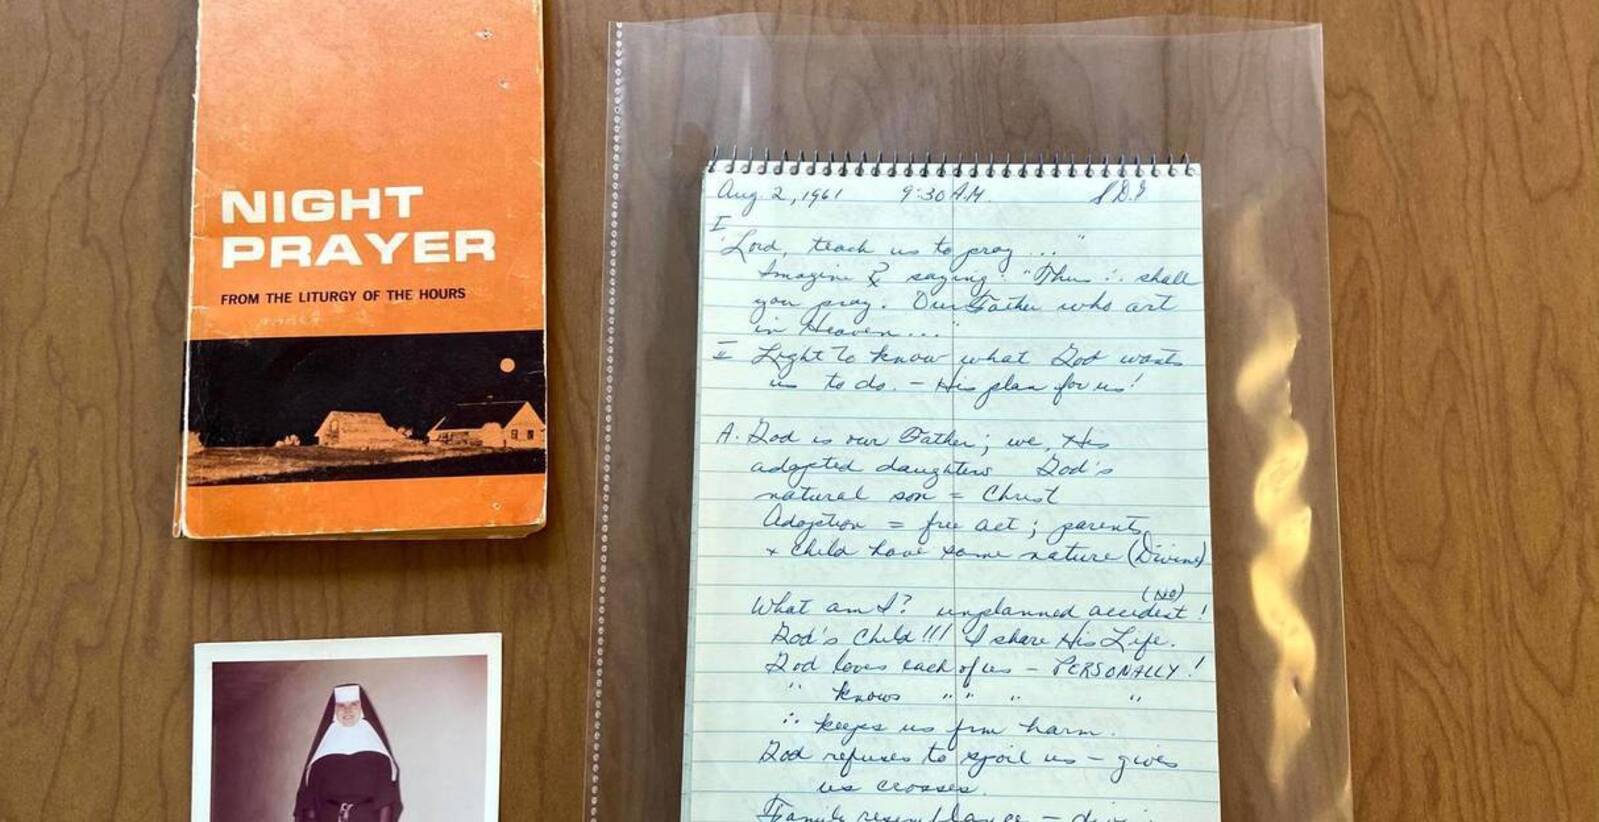 NIGHT
PRAYER
FROM THE LITURGY OF THE HOURS
Aug. 2, 1961 9:30 A.M. S.D.G
I
"Lord, teach us to pray ..."
Imagine saying: "Thus ∴ shall
you pray. Our Father who art
in Heaven..."
II Light to know what God wants
us to do. - His plan for us!
A. God is our Father; we, His
adopted daughters God's
natural son = Christ
Adoption = free act; parents
+ child have same nature (Divine)
(No)
What am I? unplanned accident!
God's Child!!! I share His Life.
God loves each of us - PERSONALLY!
" knows " " " "
∴ keeps us frm harm.
God refuses to spoil us - gives
us crosses.
Family resemblance -